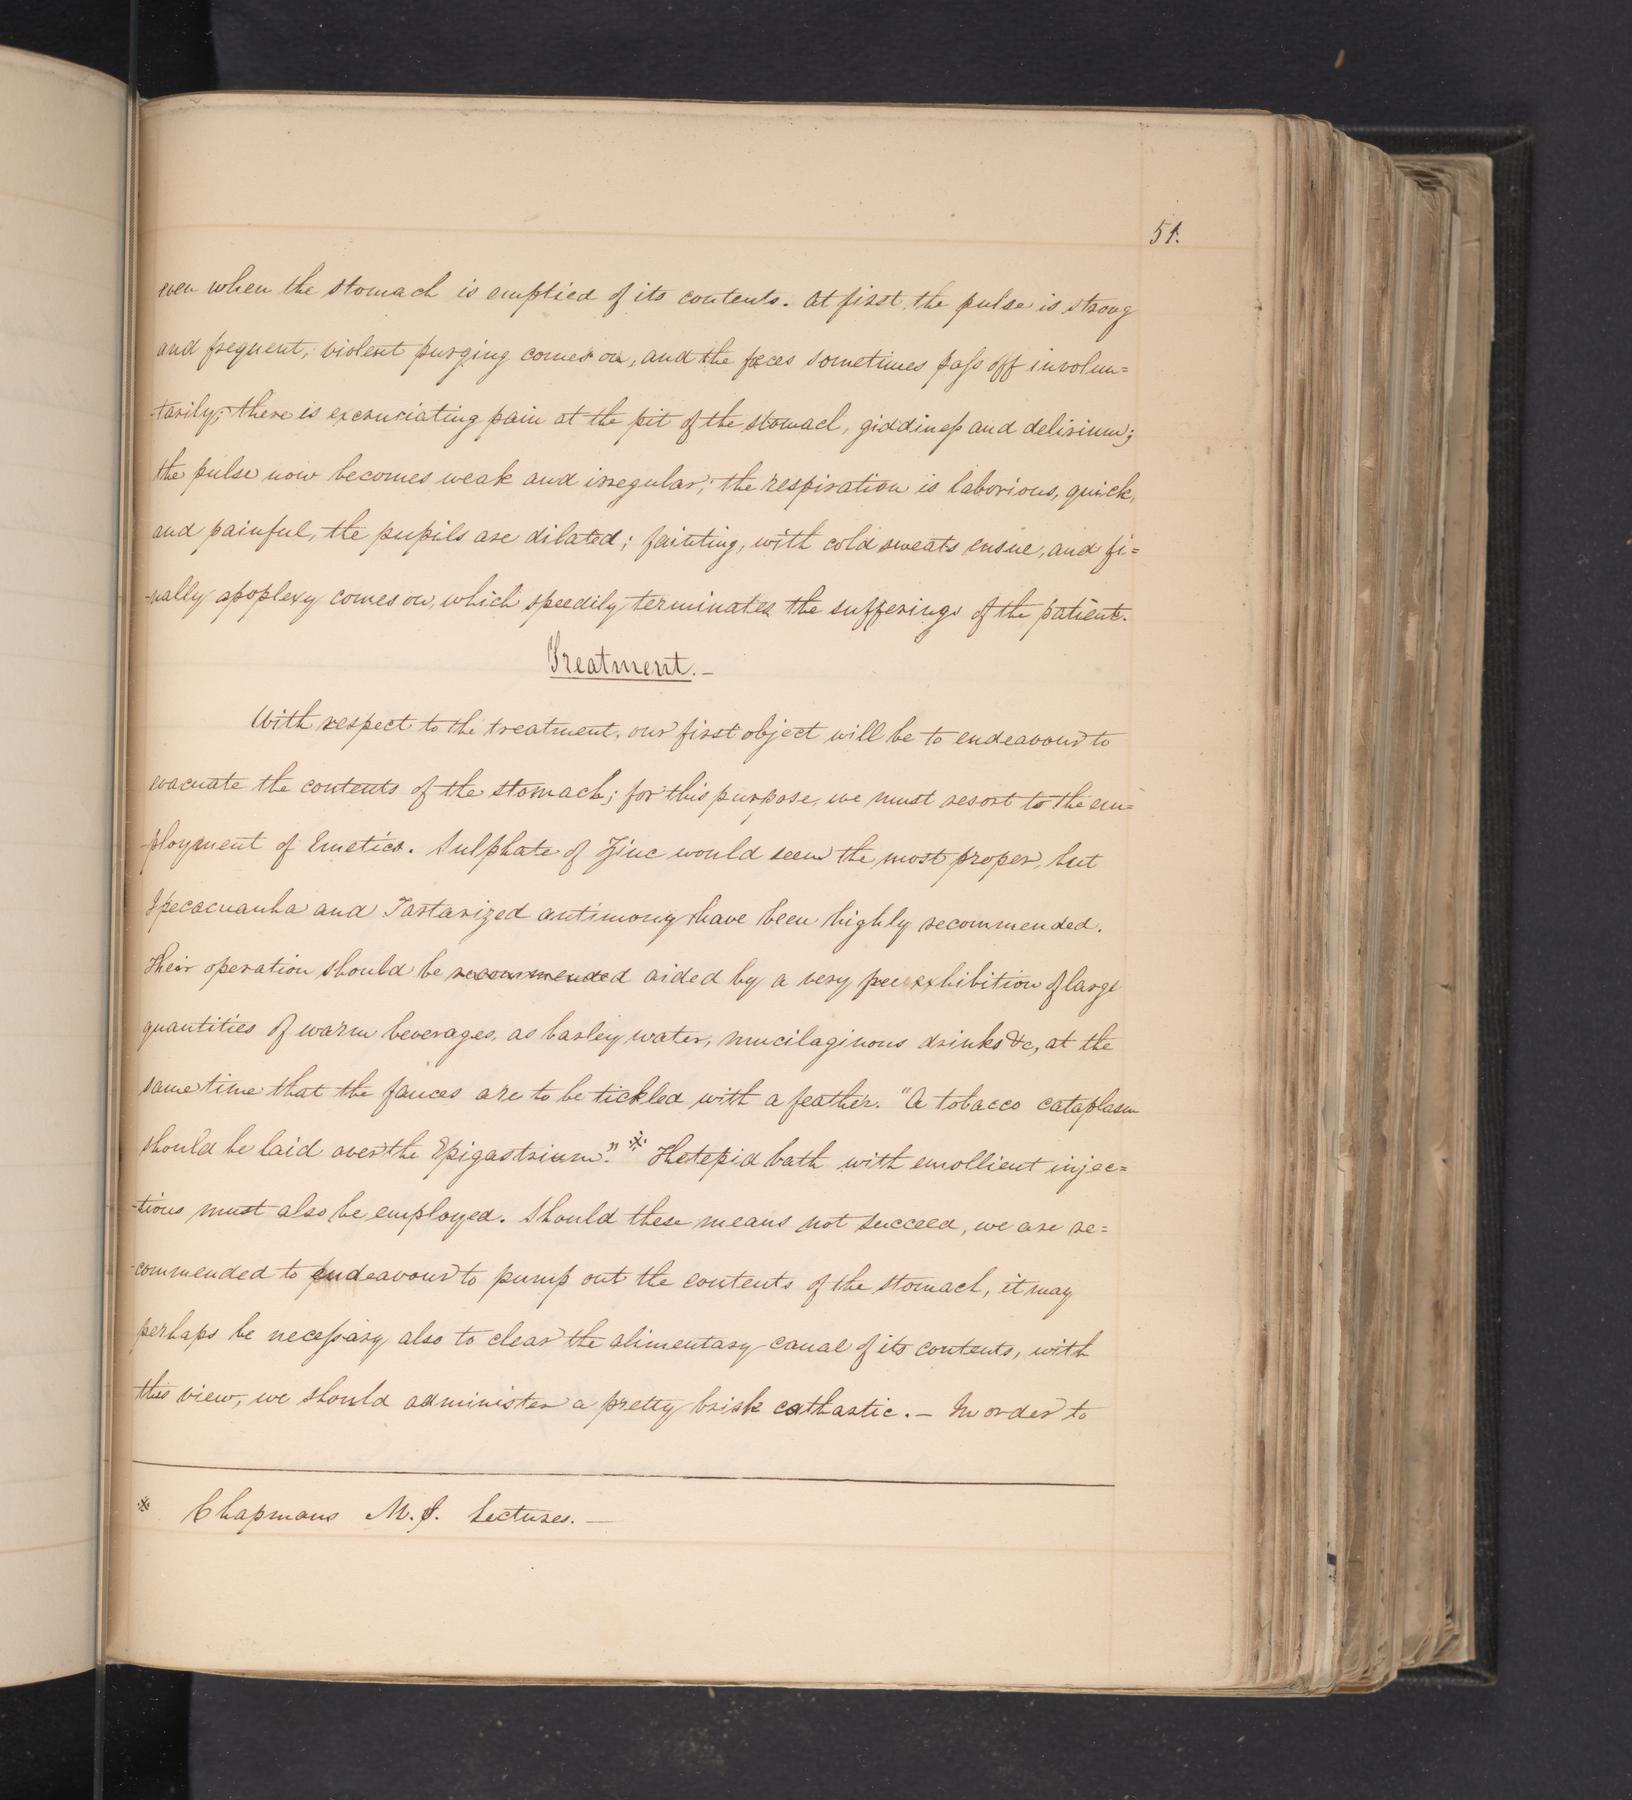 51.
even when the stomach is emptied of its contents. At first, the pulse is strong
and frequent, violent purging comes on, and the fæces sometimes pass off involun=
-tarily; there is excruciating pain at the pit of the stomach, giddiness and delirium;
the pulse now becomes weak and irregular; the respiration is laborious, quick,
and painful, the pupils are dilated; fainting, with cold sweats ensue, and fi=
-nally apoplexy comes on, which speedily terminates the sufferings of the patient.
Treatment.—
With respect to the treatment, our first object will be to endeavour to
evacuate the contents of the stomach; for this purpose, we must resort to the em=
-ployment of Emetics. Sulphate of Zinc would seem the most proper, but
Ipecacuanha and Tartarized antimony have been highly recommended.
Their operation should be recommended aided by a very free exhibition of large
quantities of warm beverages, as barley water, mucilaginous drinks &c, at the
same time that the fauces are to be tickled with a feather. "A tobacco cataplasm
should be laid over the Epigastrium." ※ The tepid bath with emollient injec=
-tions must also be employed. Should these means not succeed, we are re=
-commended to endeavour to pump out the contents of the stomach, it may
perhaps be necessary also to clear the alimentary canal of its contents, with
this view, we should administer a pretty brisk cathartic. — In order to
※ Chapmans M. S. Lectures. —